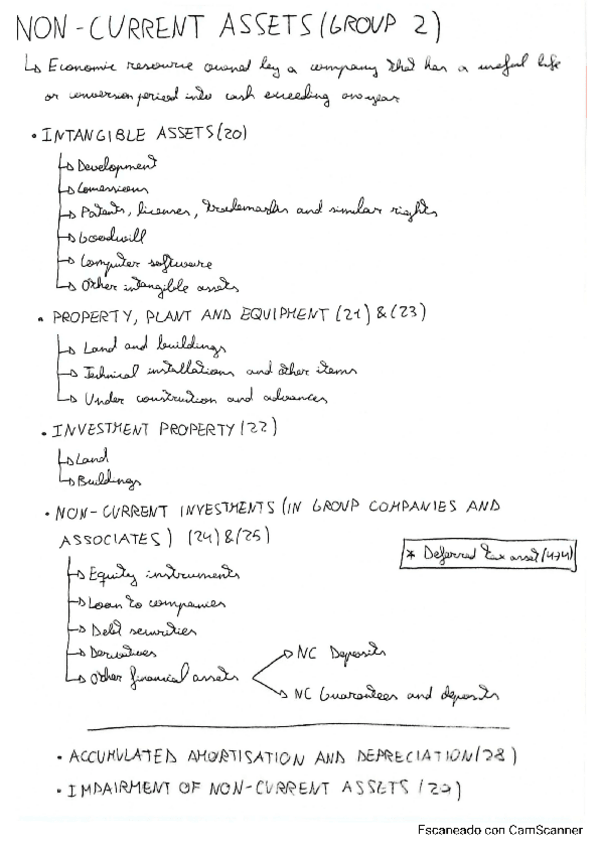 NON-CURRENT ASSETS (GROUP 2)
↳ Economic resource owned by a company that has a useful life
or conversion period into cash exceeding one year
• INTANGIBLE ASSETS (20)
↳ Development
↳ Concessions
↳ Patents, licenses, trademarks and similar rights
↳ Goodwill
↳ Computer software
↳ Other intangible assets
• PROPERTY, PLANT AND EQUIPMENT (21) & (23)
↳ Land and buildings
↳ Technical installations and other items
↳ Under construction and advances
• INVESTMENT PROPERTY (22)
↳ Land
↳ Buildings
• NON-CURRENT INVESTMENTS (IN GROUP COMPANIES AND
ASSOCIATES) (24) & (25)
* Deferred tax asset (474)
↳ Equity instruments
↳ Loan to companies
↳ Debt securities
↳ Derivatives
↳ Other financial assets
→ NC Deposits
→ NC Guarantees and deposits
• ACCUMULATED AMORTISATION AND DEPRECIATION (28)
• IMPAIRMENT OF NON-CURRENT ASSETS (29)
Escaneado con CamScanner